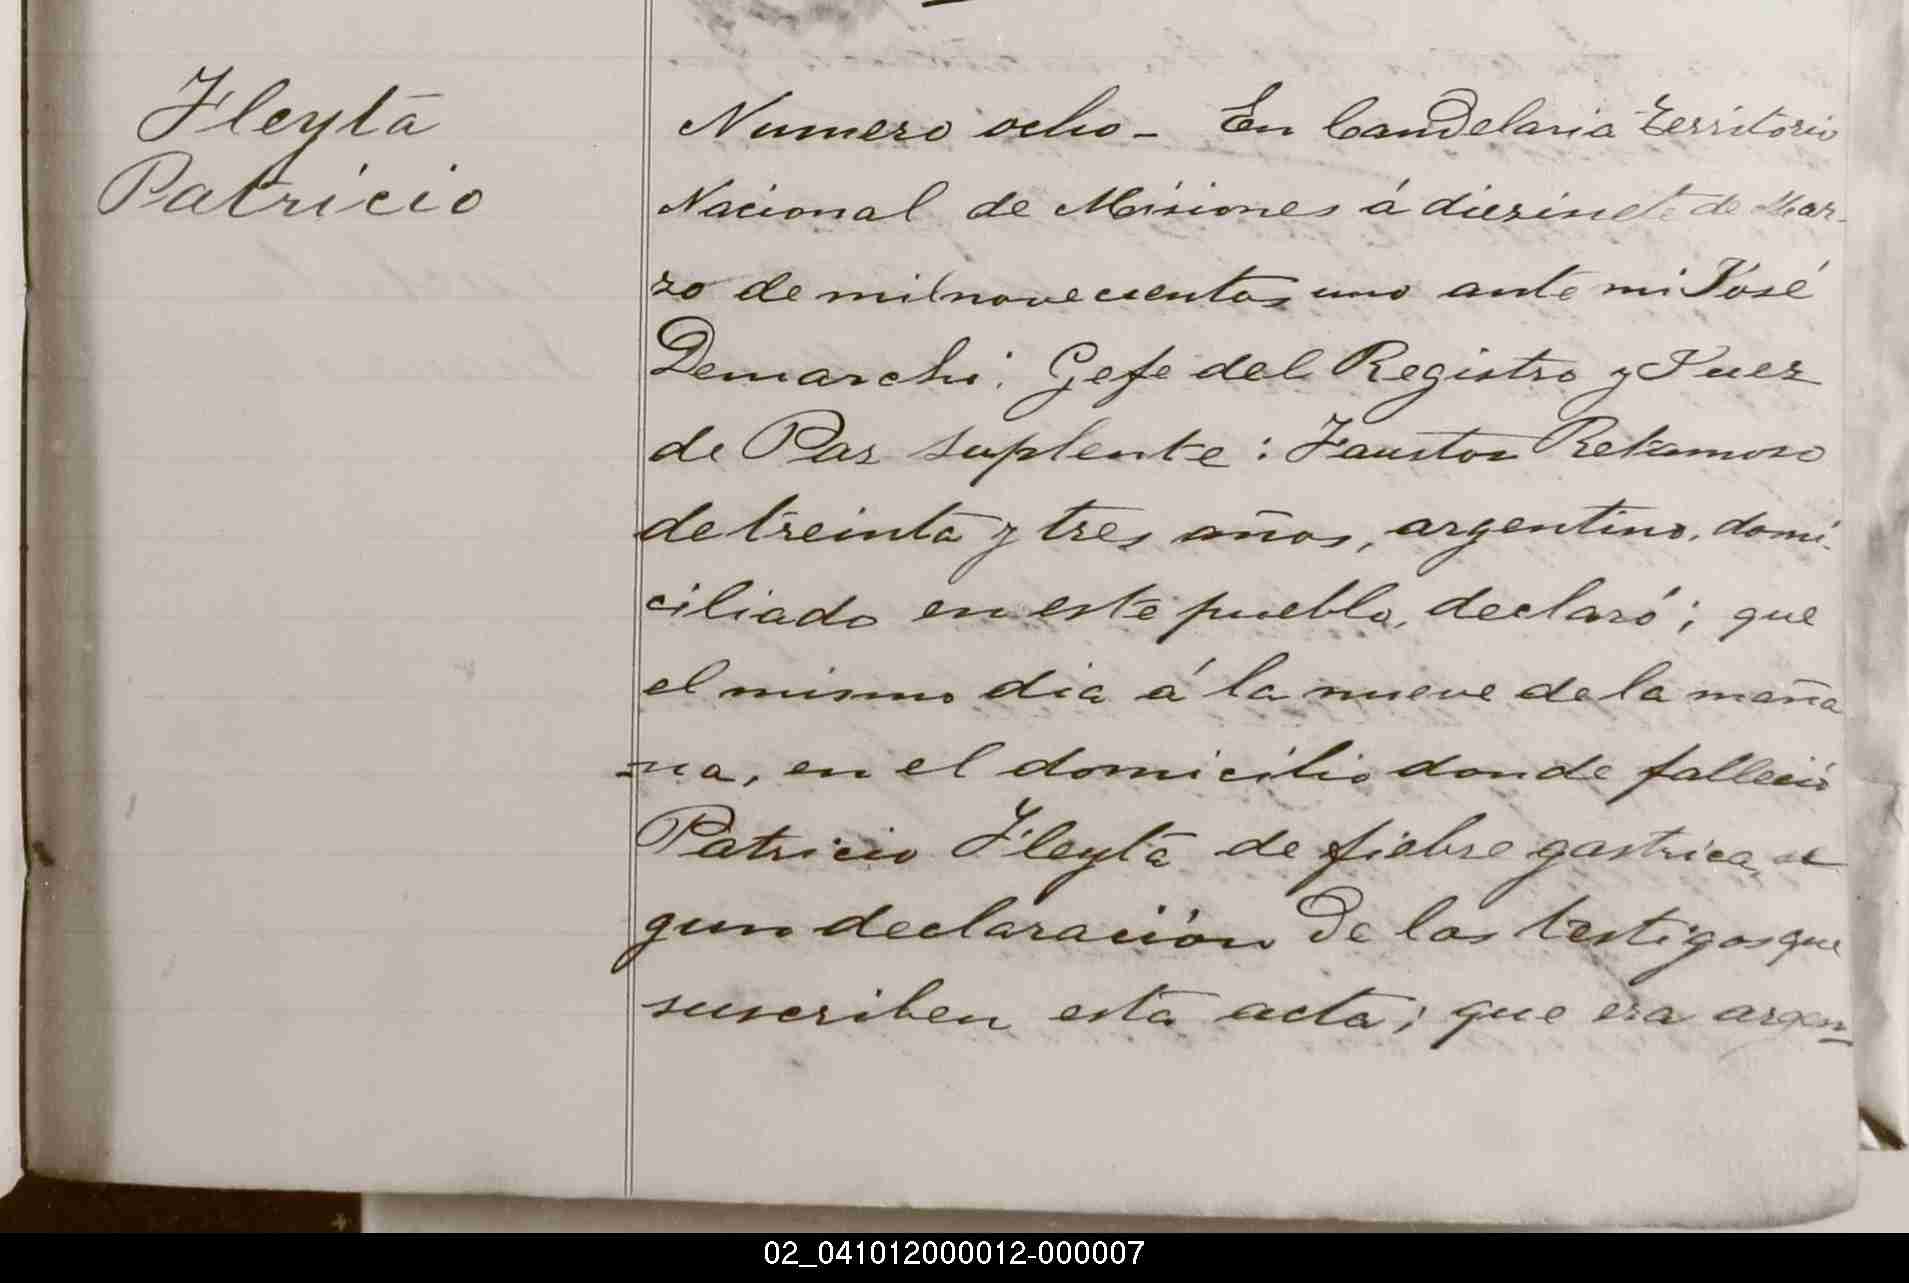 Fleyta
Patricio
Numero ocho - En Candelaria Territorio
Nacional de Misiones á diezisiete de Mar-
zo de mil novecientos uno ante mi José
Demarchi. Gefe del Registro y Juez
de Paz suplente: Fausto Retamoso
de treinta y tres años, argentino, domi-
ciliado en este pueblo, declaró; que
el mismo dia á la nueve de la maña
-na, en el domicilio donde falleció
Patricio Fleyta de fiebre gastrica, se
gun declaración de los testigos que
suscriben esta acta; que era argen-
02_041012000012-000007